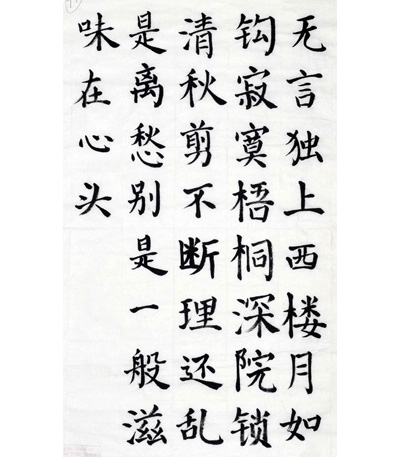 无言独上西楼月如
钩寂寞梧桐深院锁
清秋剪不断理还乱
是离愁别是一般滋
味在心头